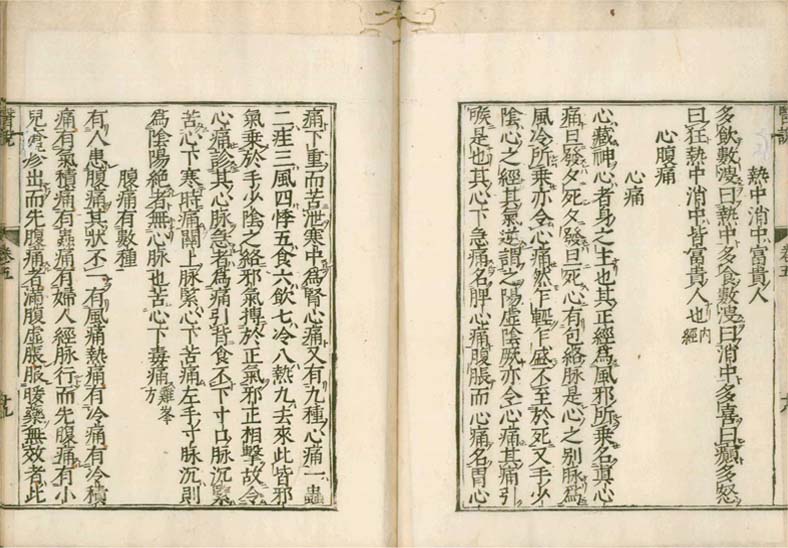 醫說
卷五
熱中消中富貴人
多飲數溲曰熱中多食數溲曰消中多喜曰癲多怒
曰狂熱中消中皆富貴人也內經
心腹痛
心痛
心藏神心者身之主也其正經為風邪所乘名真心
痛旦發夕死夕發旦死心有包絡脉是心之別脉為
風冷所乘亦令心痛然乍輕乍甚不至於死又手少
陰心之經其氣逆謂之陽虛陰厥亦令心痛其痛引
喉是也其心下急痛名脾心痛腹脹而心痛名胃心
痛下重而苦泄寒中為腎心痛又有九種心痛一蟲
二疰三風四悸五食六飲七冷八熱九去來此皆邪
氣乘於手少陰之絡邪氣搏於正氣邪正相擊故令
心痛診其心脉急者為痛引背食不下寸口脉沉緊
苦心下寒時痛關上脉緊心下苦痛左手寸脉沉則
為陰陽絕者無心脉也苦心下毒痛雞峯方
腹痛有數種
有人患腹痛其狀不一有風痛熱痛有冷痛有冷積
痛有氣積痛有蟲痛有婦人經脉行而先腹痛有小
兒瘡疹出而先腹痛者滿腹虛脹服暖藥無效者此
醫說
卷五
十九